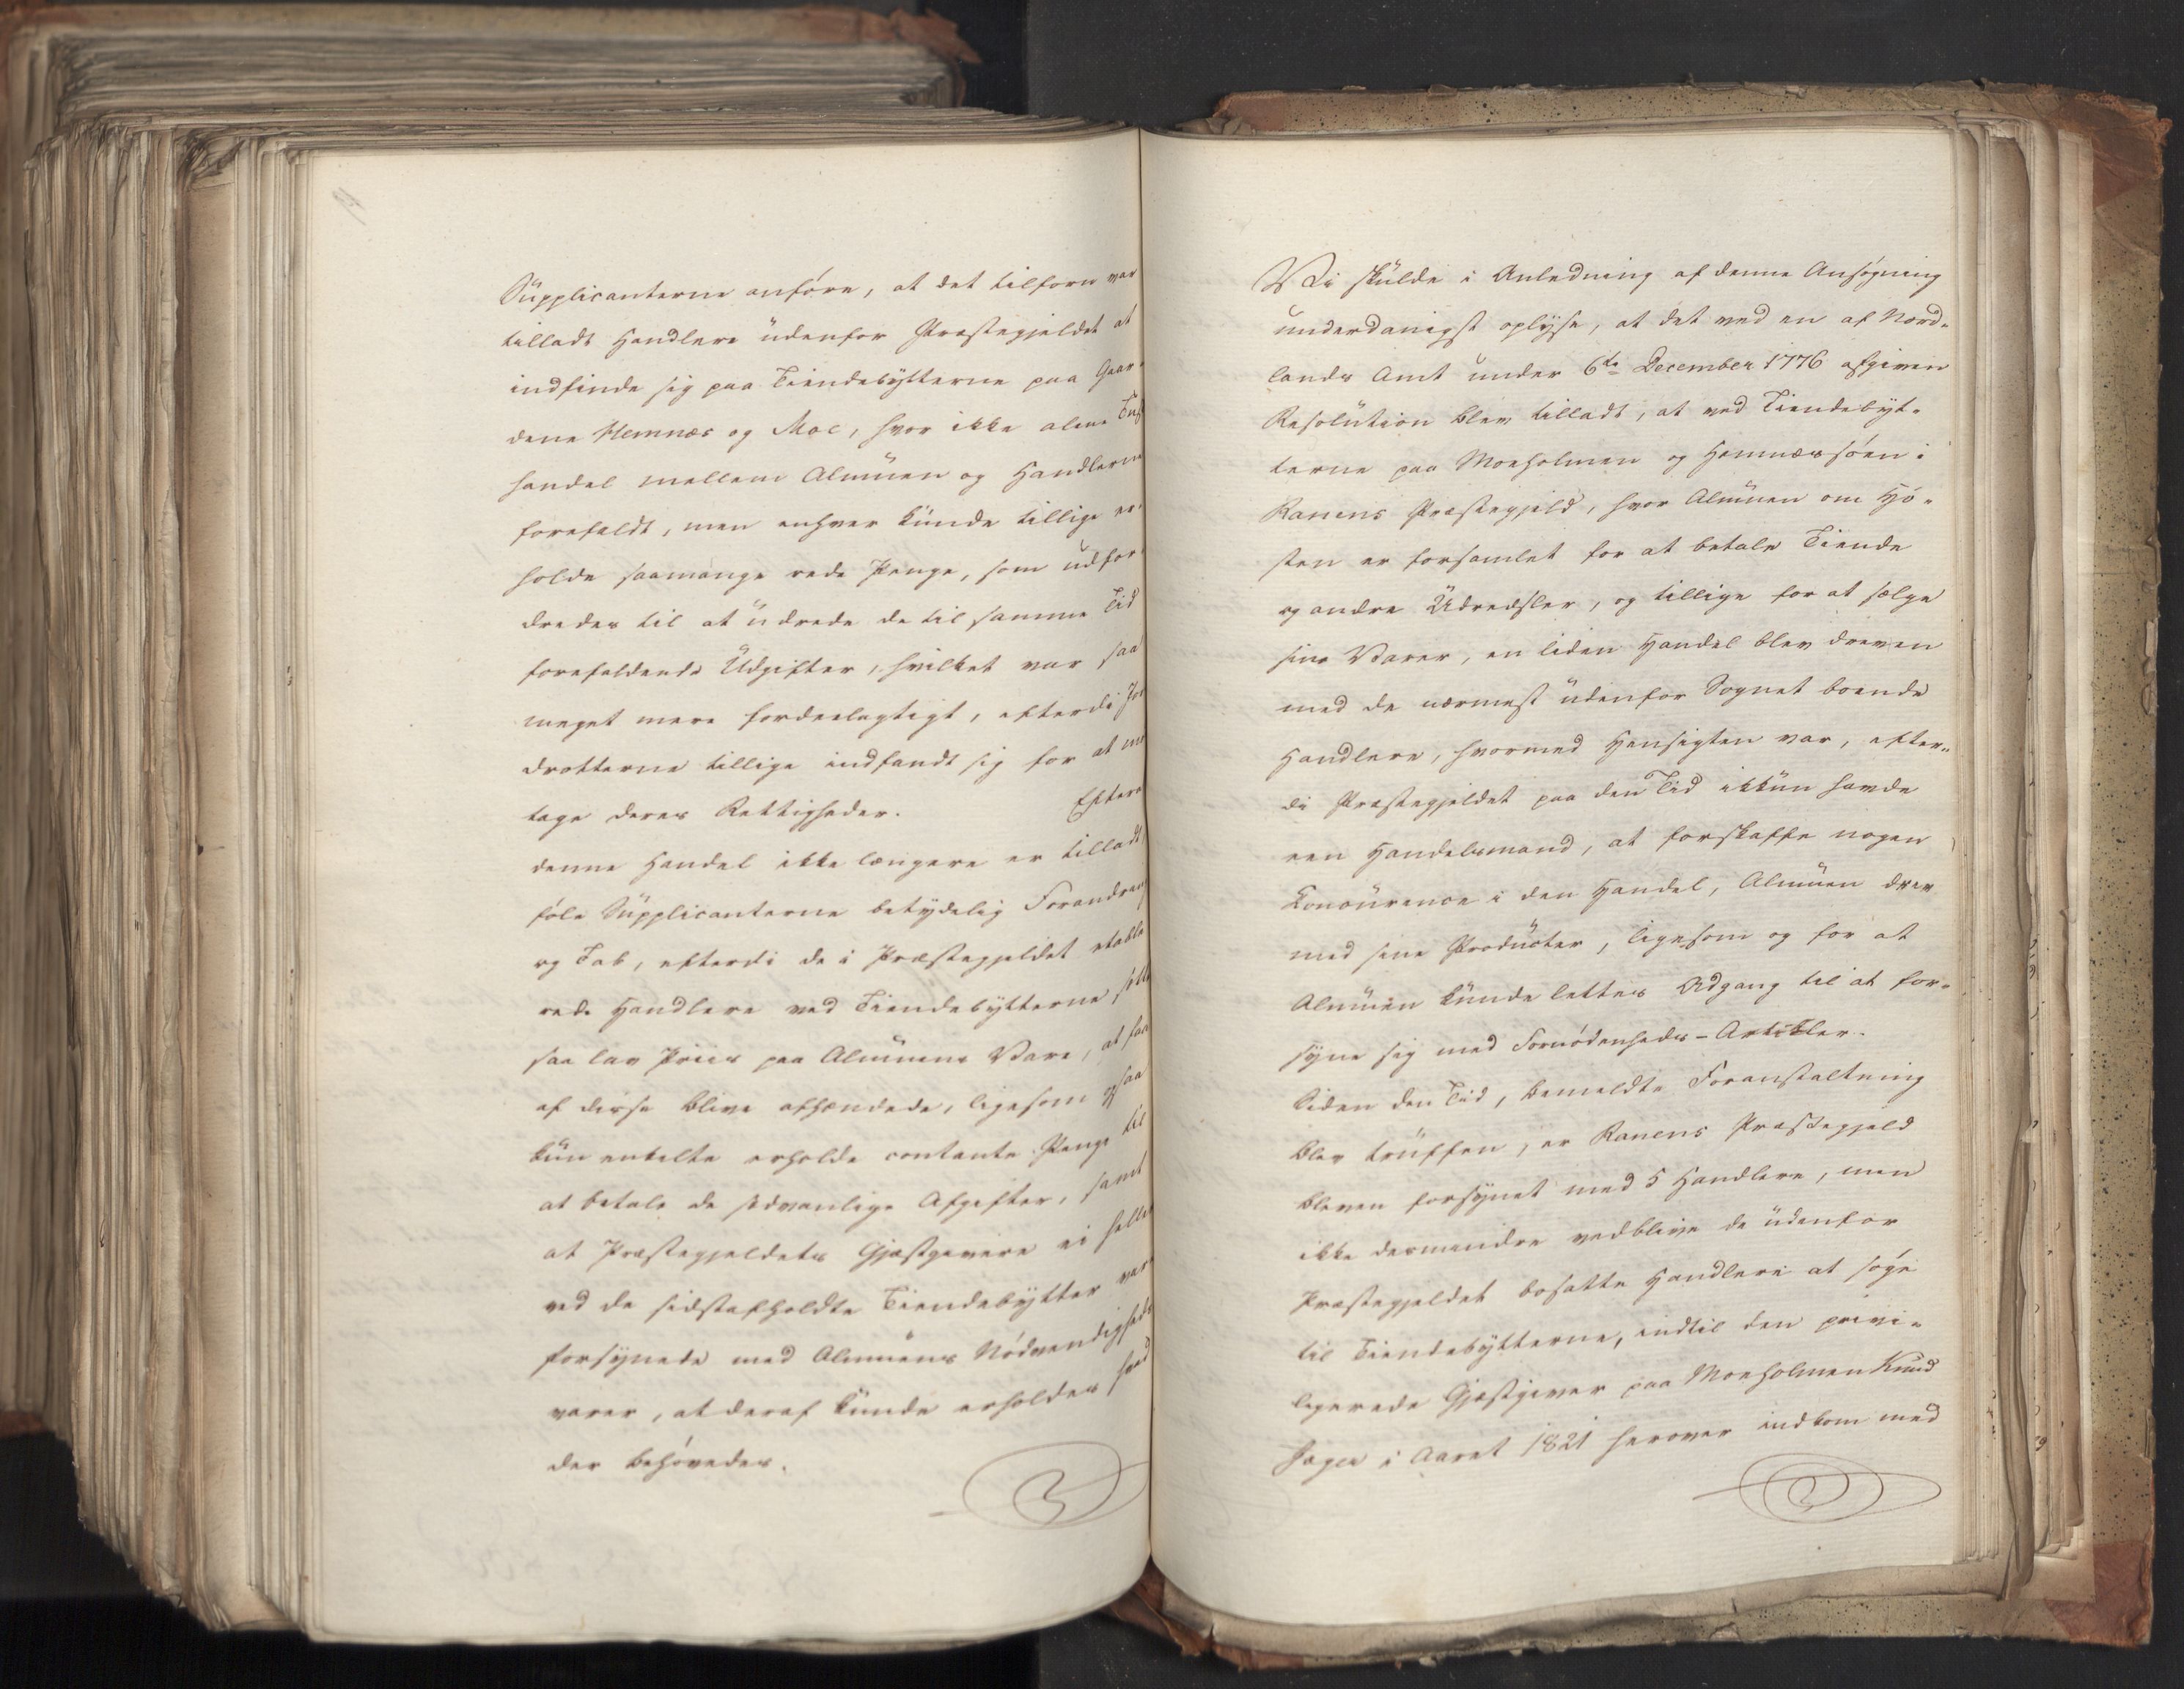 Supplicanterne anføre, at det tilforn var
tilladt Handlere udenfor Præstegjeldet at
indfinde sig paa Tiendebytterne paa Gaar-
dene Hemnæs og Moe, hvor ikke alene Tusk
handel mellem Almuen og Handlerne
forefaldt, men enhver kunde tillige er-
holde saamange rede Penge, som udfor-
dredes til at udrede de til samme Tid
forefaldende Udgifter, hvilket var saa
meget mere fordeelagtigt, efterdi Jor
drotterne tillige indfandt sig for at mod
tage deres Rettigheder. Efterat
denne Handel ikke længere er tilladt
føle Supplicanterne betydelig Forandring
og Tab, efterdi de i Præstegjeldet etable
rede Handlere ved Tiendebytterne sætte
saa lav Priis paa Almuens Vare, at faa
af disse blive afhændede, ligesom ogsaa
kun enkelte erholde contante Penge til
at betale de sædvanlige Afgifter, samt
at Præstegjeldets Gjæstgivere ei heller
ved de sidstafholdte Tiendebytter vare
forsynede med Almuens Nødvendigheds
varer, at deraf kunde erholdes hvad
der behøvedes.
Vi skulde i Anledning af denne Ansøgning
underdanigst oplyse, at det ved en af Nord-
lands Amt under 6te December 1776 afgiven
Resolution blev tilladt, at ved Tiendebyt-
terne paa Moeholmen og Hemnæssøen i
Ranens Præstegjeld, hvor Almuen om Hø-
sten er forsamlet for at betale Tiende
og andre Udredsler, og tillige for at sælge
sine Varer, en liden Handel blev dreven
med de nærmest udenfor Sognet boende
Handlere, hvormed Hensigten var, efter-
di Præstegjeldet paa den Tid ikkun havde
een Handelsmand, at forskaffe nogen
Concurence i den Handel, Almuen drev
med sine Producter, ligesom og for at
Almuen kunde lettes Adgang til at for-
syne sig med Fornødenheds-Artikler.
Siden den Tid, bemeldte Foranstaltning
blev truffen, er Ranens Præstegjeld
bleven forsynet med 5 Handlere, men
ikke desmindre vedblive de udenfor
Præstegjeldet bosatte Handlere at søge
til Tiendebytterne, indtil den privi-
ligerede Gjæstgiver paa Moeholmen Knud
i Aaret 1821 herover indkom med